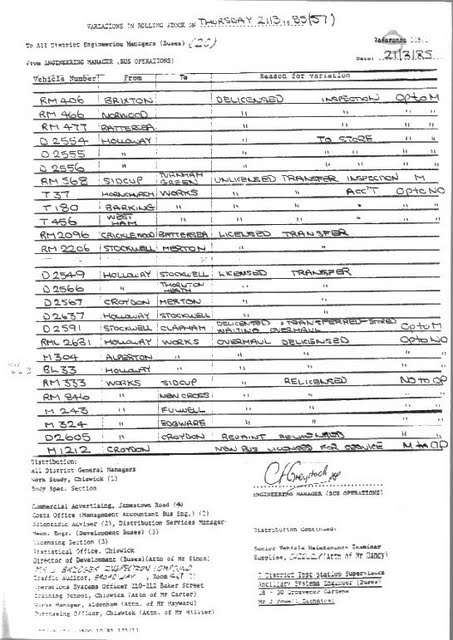 VARIATIONS IN ROLLING STOCK ON THURSDAY 21.3.85 (57)
To All District Engineering Managers (Buses) (20)
From ENGINEERING MANAGER (BUS OPERATIONS) Date: 21/3/85
Vehicle Number From To Reason for variation
RM 406 BRIXTON DELICENSED INSPECTION Op to M
RM 966 NORWOOD " " " "
RM 477 BATTERSEA " " " "
D 2554 HOLLOWAY " TO STORE " "
D 2555 " " " " "
D 2556 " " " " "
RM 568 SIDCUP TURNHAM GREEN UNLICENSED TRANSFER INSPECTION M
T 37 HORNCHURCH WORKS " " ACC'T Op to NO
T 180 BARKING " " " " " "
T 456 WEST HAM " " " " " "
RM 2096 CRICKLEWOOD BATTERSEA LICENSED TRANSFER
RM 2206 STOCKWELL MERTON " "
D 2549 HOLLOWAY STOCKWELL LICENSED TRANSFER
D 2566 " THORNTON HEATH " "
D 2567 CROYDON MERTON " "
D 2637 HOLLOWAY STOCKWELL " "
D 2591 STOCKWELL CLAPHAM DELICENSED & TRANSFERRED-STORED WAITING OVERHAUL Op to M
RML 2681 HOLLOWAY WORKS OVERHAUL DELICENSED Op to NO
M 304 ALPERTON " " " " "
BL 33 HOLLOWAY " " " " "
RM 333 WORKS SIDCUP " RELICENSED NO to OP
RM 846 " NEW CROSS " " " "
M 243 " FULWELL " " " "
M 324 " EDGWARE " " " "
D 2605 " CROYDON REPAINT RELICENSED " "
M 1212 CROYDON NEW BUS LICENSED FOR SERVICE M to OP
Distribution:
All District General Managers
Work Study, Chiswick (1)
Body Spec. Section
ENGINEERING MANAGER (BUS OPERATIONS)
Commercial Advertising, Jamestown Road (4)
Costs Office (Management Accountant Bus Eng.) (2)
Scientific Adviser (2), Distribution Services Manager
Mech. Engr. (Development Buses) (3)
Licensing Section (3)
Statistical Office, Chiswick
Director of Development (Buses)(Attn of Mr Sinon)
INSPECTION COMPOUND
Traffic Auditor, BROADWAY, Room
Operations Systems Officer 110-112 Baker Street
Training School, Chiswick (Attn of Mr Carter)
Works Manager, Aldenham (Attn of Mr Hayward)
Purchasing Officer, Chiswick (Attn of Mr Hillier)
Distribution Continued:
Senior Vehicle Maintenance Examiner
Supplies, (Attn of Mr Hancy)
District Test Station Supervisors
Ancillary Systems Engineer (Buses)
18 - 20 Grosvenor Gardens